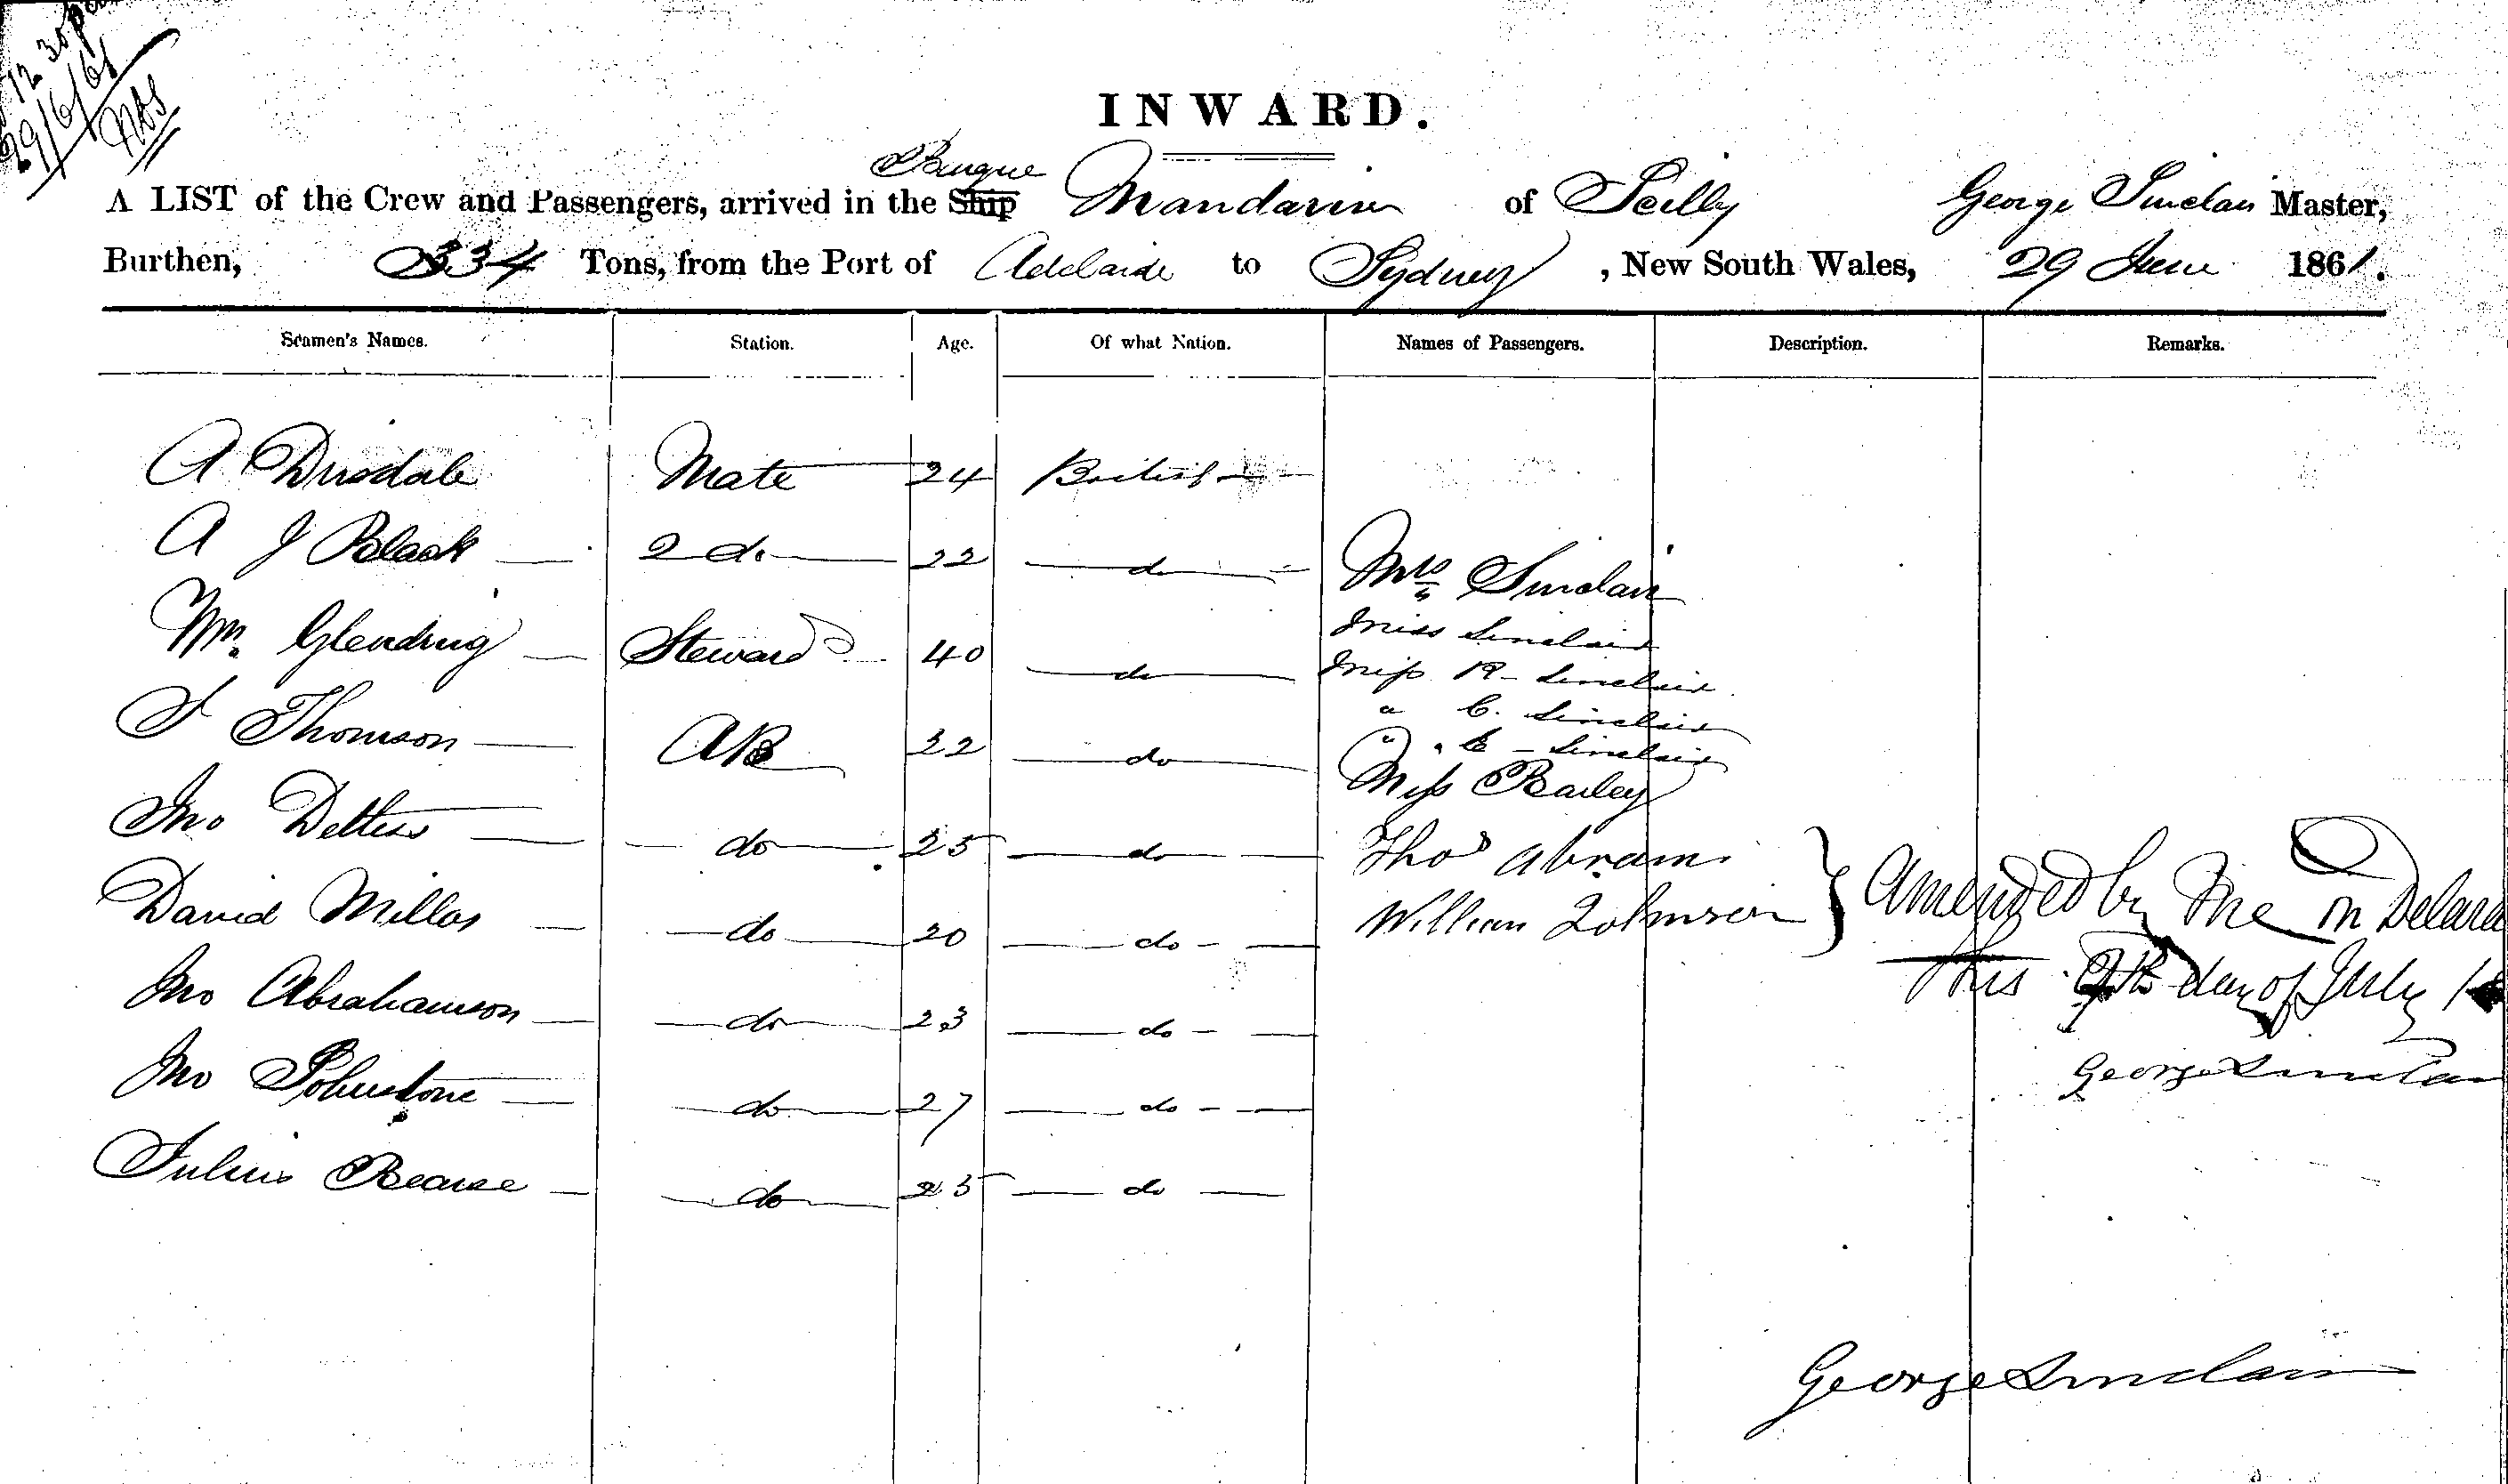 12 30 pm
29/6/61
INWARD.
Barque
A LIST of the Crew and Passengers, arrived in the Ship Mandarin of Scilly George Sinclair Master,
Burthen, 334 Tons, from the Port of Adelaide to Sydney, New South Wales, 29 June 1861.
Seamen's Names. Station. Age. Of what Nation. Names of Passengers. Description. Remarks.
A Dinsdale Mate 24 British
A J Black 2 do 22 do Mrs Sinclair
Miss Sinclair
Wm Glendring Steward 40 do Miss R Sinclair
" C. Sinclair
T Thomson AB 22 do " E Sinclair
Miss Bailey
Jno do 25 do Thos Abram
David Millar do 20 do William Johnson } Amended by me on
this day of July
Jno Abrahamson do 23 do
Jno Johnstone do 27 do George Sinclair
Julius Bearse do 25 do
George Sinclair